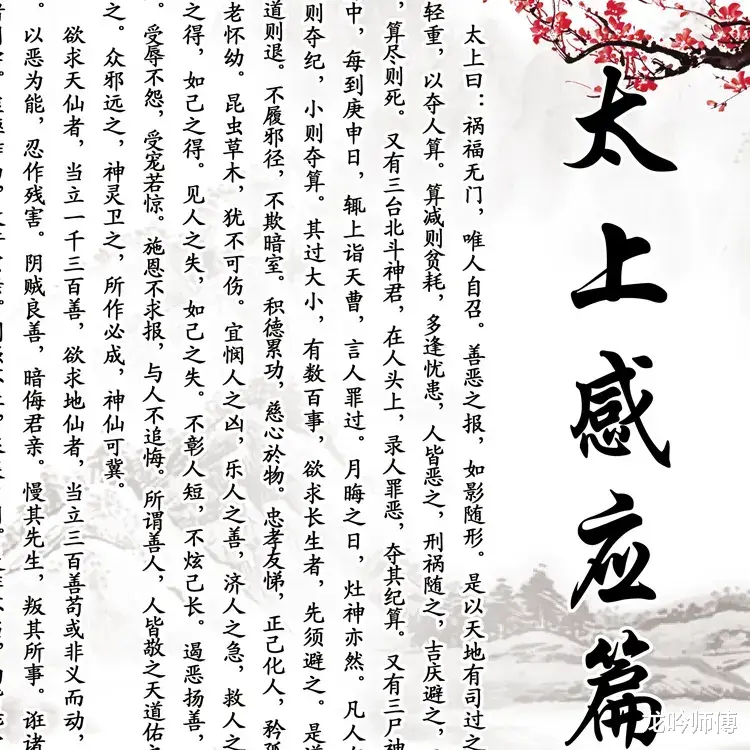 太上感应篇
太上曰：祸福无门，唯人自召。善恶之报，如影随形。是以天地有司过之
轻重，以夺人算。算减则贫耗，多逢忧患，人皆恶之，刑祸随之，吉庆避之，
，算尽则死。又有三台北斗神君，在人头上，录人罪恶，夺其纪算。又有三尸神
中，每到庚申日，辄上诣天曹，言人罪过。月晦之日，灶神亦然。凡人
则夺纪，小则夺算。其过大小，有数百事，欲求长生者，先须避之。是
道则退。不履邪径，不欺暗室。积德累功，慈心於物。忠孝友悌，正己化人，矜孤
老怀幼。昆虫草木，犹不可伤。宜悯人之凶，乐人之善，济人之急，救人之
之得，如己之得。见人之失，如己之失。不彰人短，不炫己长。遏恶扬善，
。受辱不怨，受宠若惊。施恩不求报，与人不追悔。所谓善人，人皆敬之天道佑之
之。众邪远之，神灵卫之，所作必成，神仙可冀。
欲求天仙者，当立一千三百善，欲求地仙者，当立三百善苟或非义而动，
。以恶为能，忍作残害。阴贼良善，暗侮君亲。慢其先生，叛其所事。诳诸
龙吟师傅